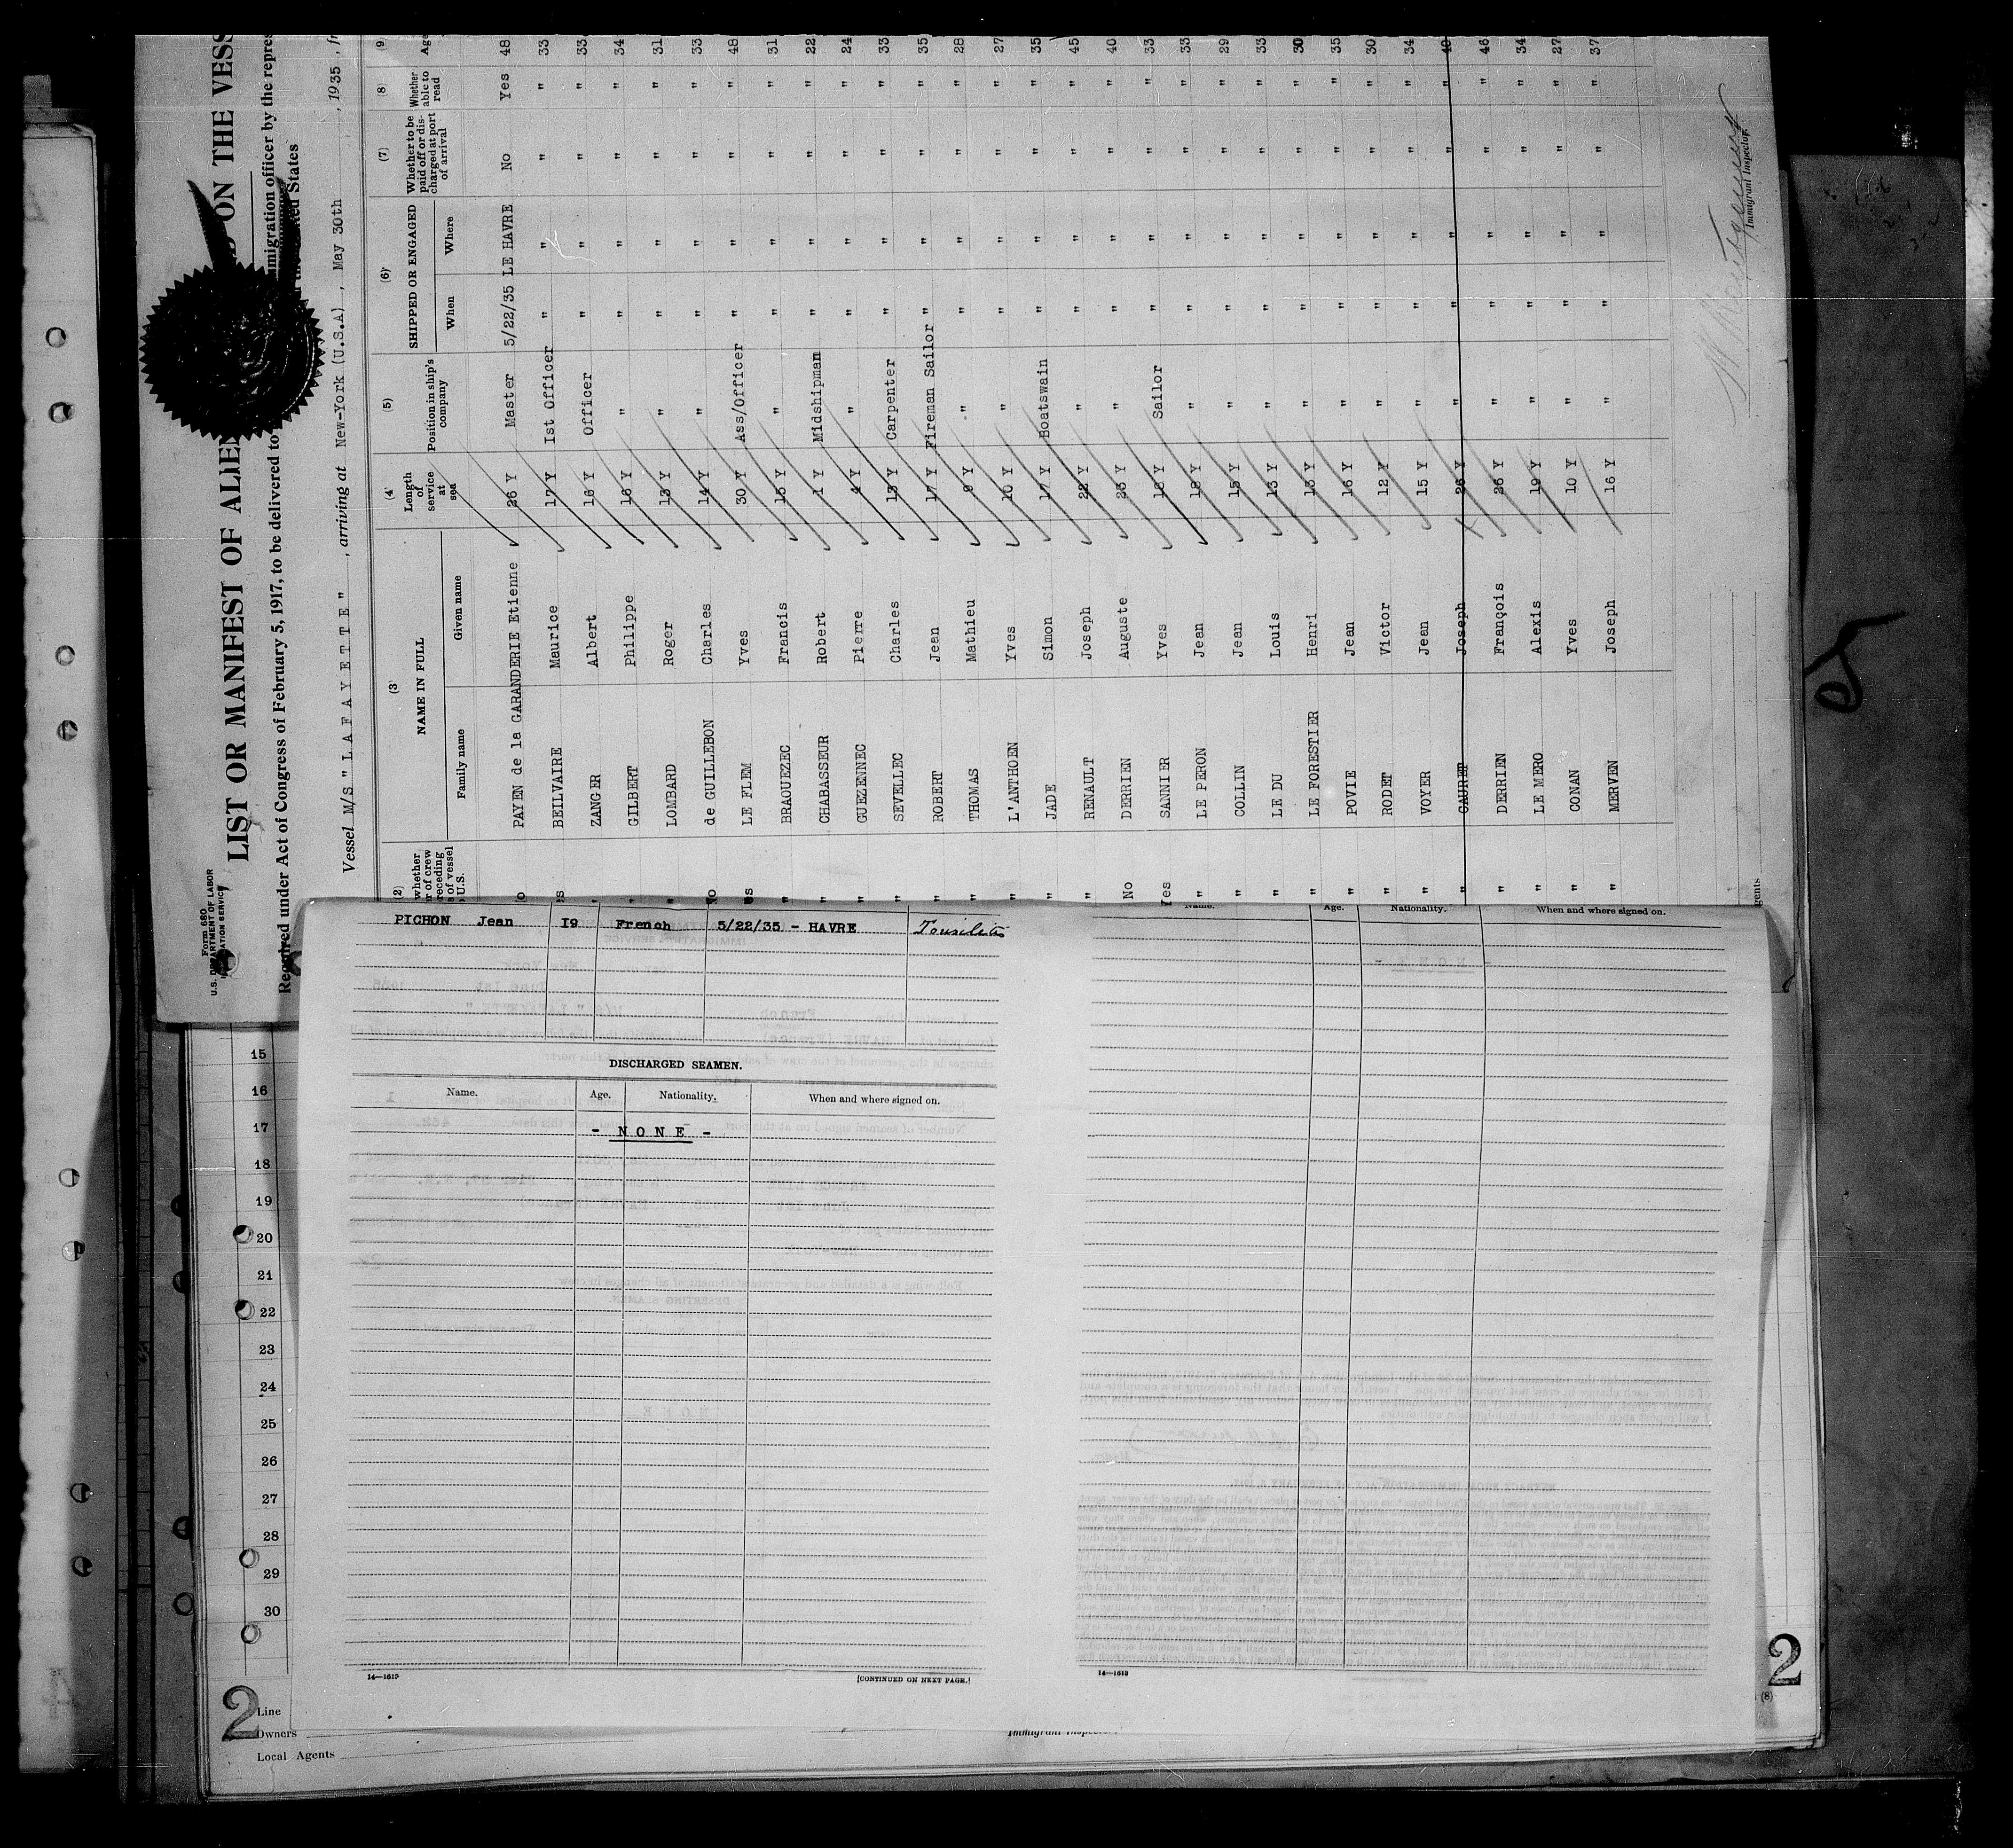 Form 680
U.S. DEPARTMENT OF LABOR
IMMIGRATION SERVICE
LIST OR MANIFEST OF ALIEN ON THE VESS
Required under Act of Congress of February 5, 1917, to be delivered to immigration officer by the repres
States
Vessel M/S "LAFAYETTE", arriving at New-York (U.S.A), May 30th, 1935, fr
(2) (3) (4) (5) (6) (7) (8) (9)
whether
of crew
preceding
of vessel
U.S.
NAME IN FULL
Family name Given name
Length of service at sea
Position in ship's company
SHIPPED OR ENGAGED
When Where
Whether to be paid off or discharged at port of arrival
Whether able to read
Age
PAYEN de la GARANDERIE Etienne 26 Y Master 5/22/35 LE HAVRE No Yes 48
BEILVAIRE Maurice 17 Y 1st Officer " " " " 33
ZANGER Albert 16 Y Officer " " " " 33
GILBERT Philippe 16 Y " " " " " 34
LOMBARD Roger 13 Y " " " " " 31
de GUILLEBON Charles 14 Y " " " " " 33
LE FLEM Yves 30 Y Ass/Officer " " " " 48
BRAOUEZEC Francis 15 Y " " " " " 31
CHABASSEUR Robert 1 Y Midshipman " " " " 22
GUEZENNEC Pierre 4 Y " " " " " 24
SEVELLEC Charles 13 Y Carpenter " " " " 33
ROBERT Jean 17 Y Fireman Sailor " " " " 35
THOMAS Mathieu 9 Y " " " " " 28
L'ANTHOEN Yves 10 Y " " " " " 27
JADE Simon 17 Y Boatswain " " " " 35
RENAULT Joseph 22 Y " " " " " 45
No DERRIEN Auguste 23 Y " " " " " 40
Yes SANNIER Yves 18 Y Sailor " " " " 33
" LE PERON Jean 18 Y " " " " " 33
" COLLIN Jean 15 Y " " " " " 29
" LE DU Louis 13 Y " " " " " 33
" LE FORESTIER Henri 13 Y " " " " " 30
" POVIE Jean 16 Y " " " " " 35
" RODET Victor 12 Y " " " " " 30
" VOYER Jean 15 Y " " " " " 34
" GAURET Joseph 26 Y " " " " " 40
" DERRIEN François 26 Y " " " " " 46
" LE MERO Alexis 19 Y " " " " " 34
" CONAN Yves 10 Y " " " " " 27
" MERVEN Joseph 16 Y " " " " " 37
Immigrant Inspector.
PICHON Jean 19 French 5/22/35 - HAVRE Tonsilitis
DISCHARGED SEAMEN.
Name. Age. Nationality. When and where signed on.
- NONE -
14—1613
[CONTINUED ON NEXT PAGE.]
Name. Age. Nationality. When and where signed on.
14—1613
15
16
17
18
19
20
21
22
23
24
25
26
27
28
29
30
2
2
(8)
Line
Owners
Local Agents
Immigrant Inspector.